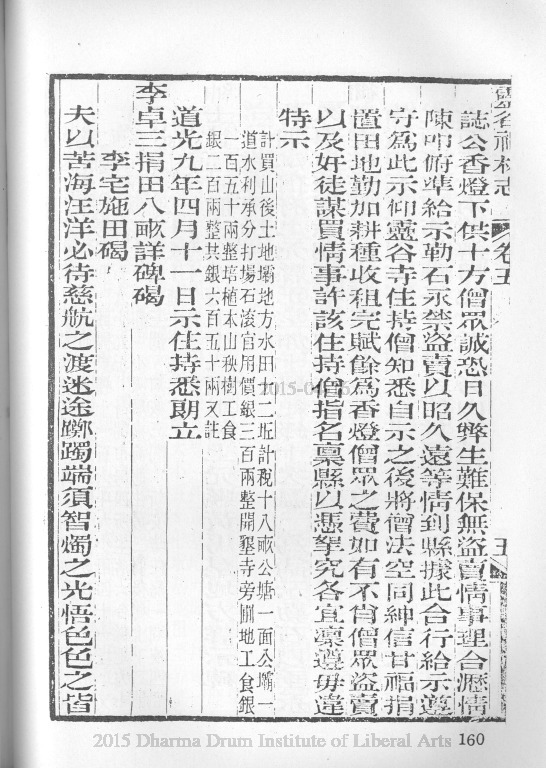 靈谷禪林志 卷五 五
誌公香燈下供十方僧眾誠恐日久弊生難保無盜賣情事理合瀝情
陳叩俯準給示勒石永禁盜賣以昭久遠等情到縣據此合行給示遵
守為此示仰靈谷寺住持僧知悉自示之後將僧法空同紳信甘福捐
置田地勤加耕種收租完賦餘為香燈僧眾之費如有不肖僧眾盜賣
以及奸徒謀買情事許該住持僧指名稟縣以憑拏究各宜凜遵毋違
特示
計買山後土地壩地方水田大二坵計稅十八畝公塘一面公壩一
道水利承分打場石滾官用價銀三百兩整開墾寺旁關地工食銀
一百五十兩整培植本山秧樹工食
銀二百兩整共銀六百五十兩又註
道光九年四月十一日示住持悉朗立
李卓三捐田八畝詳碑碣
李宅施田碣
夫以苦海汪洋必待慈航之渡迷途躑躅端須智燭之光悟色色之皆
2015-04
2015 Dharma Drum Institute of Liberal Arts 160